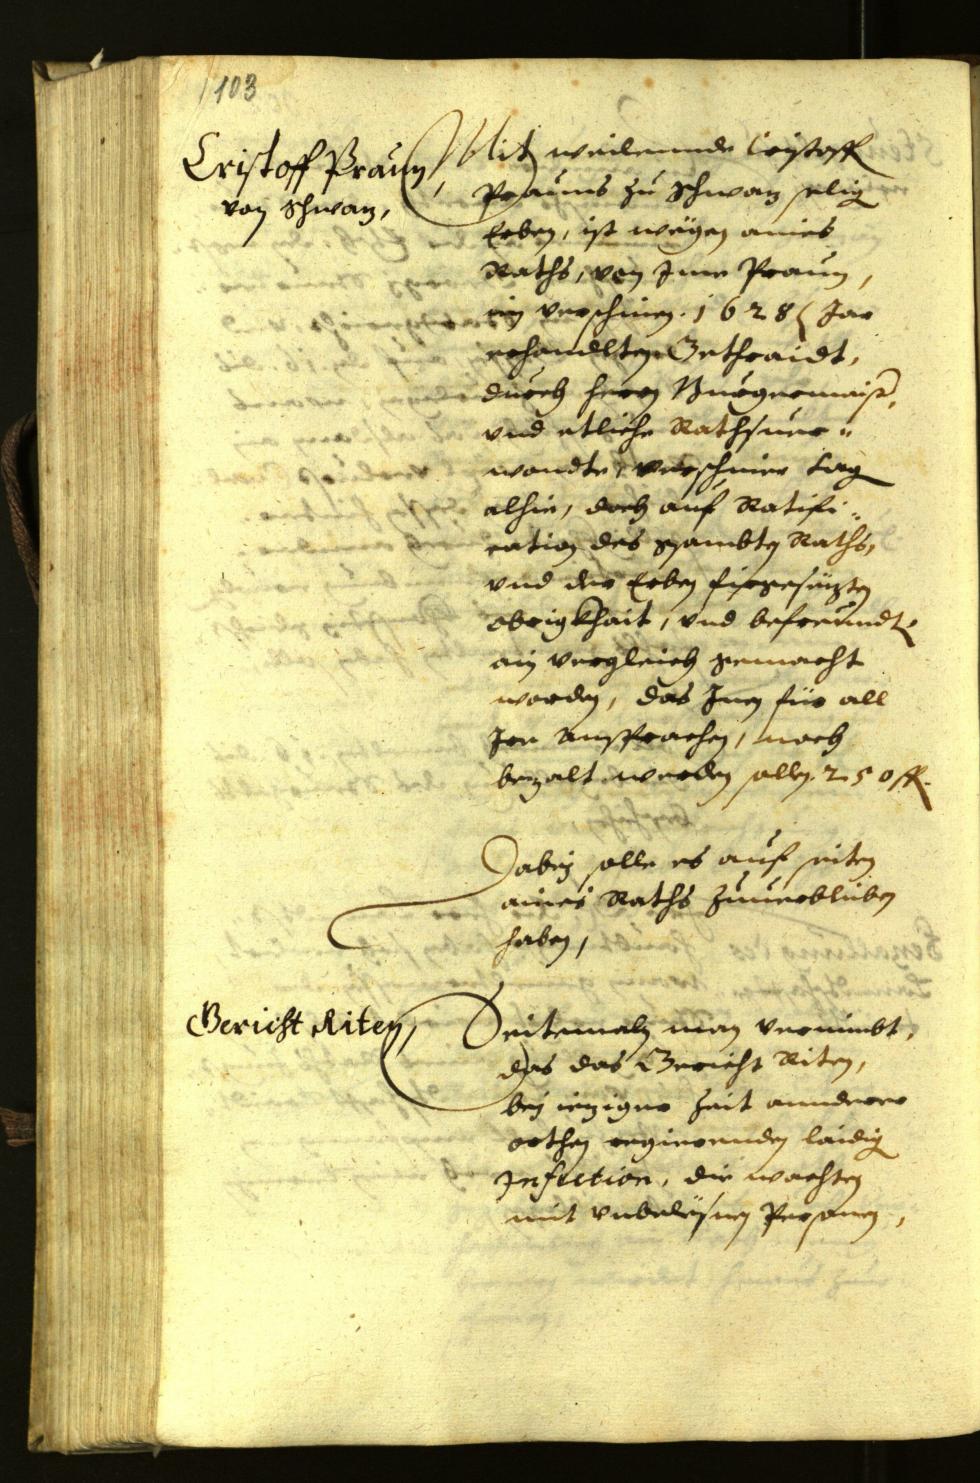 103
Cristoff Praun,
von Schwaz,
Mit weilennde Cristoff
Prauns zu Schwaz selig
Erben, ist wegen aines
Raths, von Ime Praun,
im verschinen 1628 Jar
erhandlten Gethraidt,
durch herrn Burgermaister,
vnd etliche Rathsuer„
wandte, verschiner tag
alhie, doch auf Ratifi„
cation des gsambten Raths,
vnd der Erben fürgesezten
obrigkhait, vnd befreundte
ain vergleich gemacht
worden, das Inen für all
Ire Ansprachen, noch
bezalt werden sollen 250 fl.
Dabey solle es auf seiten
aines Raths zuuerbleiben
haben,
Gericht Riten,
Seitemaln man vernimbt,
das das Gericht Riten,
bey ieziger Zeit annderer
orthen regierenden laidig
Infection, die wachten
mit Personen,